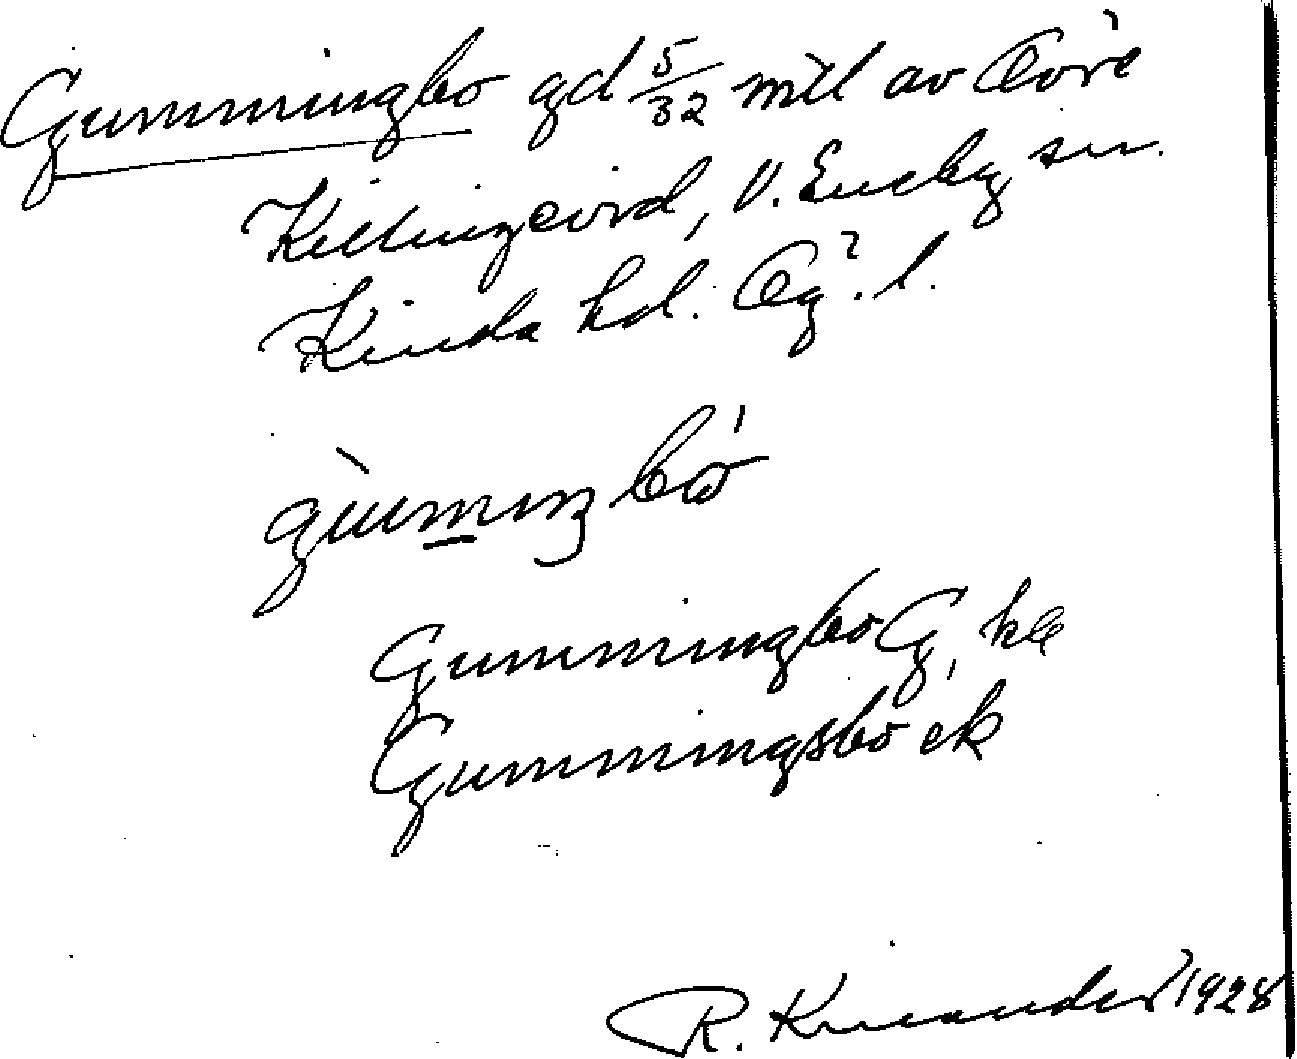 Gummingbo gd 5/32 mtl av Övre
Killingevid, V. Eneby sn.
Kinda hd. Ög. l.
gùmıŋbó
Gummingbo G, ke
Gummingsbo ek
R. Kinander 1928